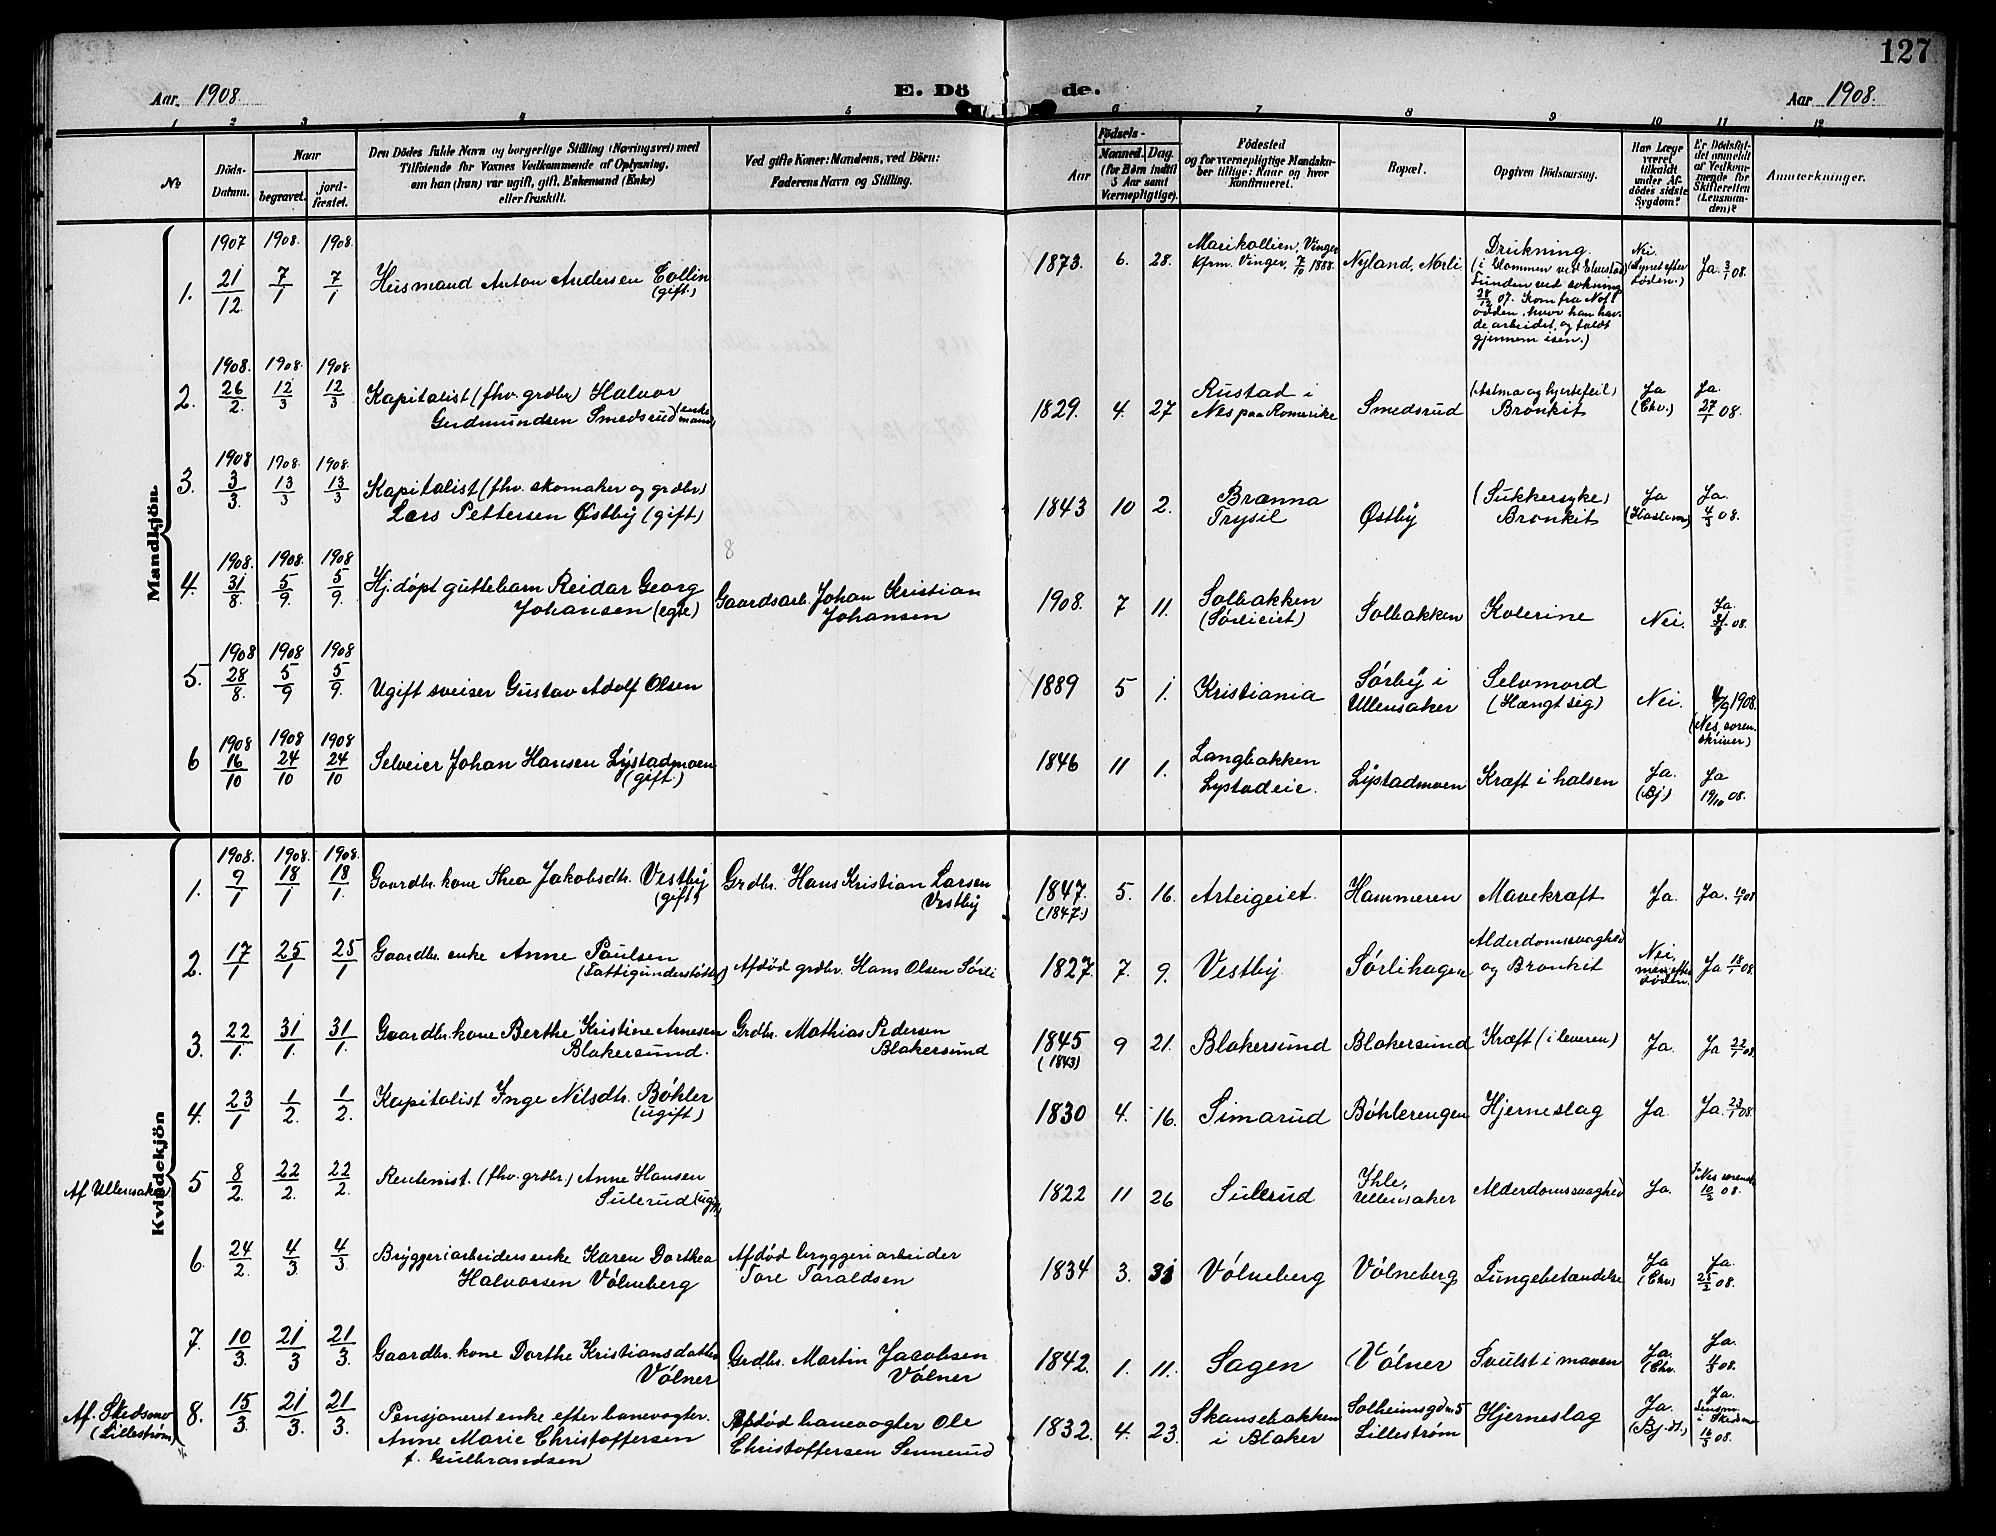 127
Aar 1908.
E. Döde.
Aar 1908.
1 2 3 4 5 6 7 8 9 10 11 12
No
Döds-Datum.
Naar
begravet.
jordfæstet.
Den Dödes fulde Navn og borgerlige Stilling (Næringsvei) med
Tilföiende for Voxnes Vedkommende af Oplysning,
om han (hun) var ugift, gift, Enkemand (Enke)
eller fraskilt.
Ved gifte Koner: Mandens, ved Börn:
Faderens Navn og Stilling.
Födsels-
Aar
Maaned. Dag.
(for Børn indtil
5 Aar samt
Værnepligtige).
Födested
og for værnepligtige Mandskaber tillige: Naar og hvor
Konfirmeret.
Bopæl.
Opgiven Dödsaarsag.
Har Læge
været
tilkaldt
under Afdödes sidste
Sygdom?
Er Dödsfaldet anmeldt
af Vedkommende for
Skifteretten
(Lensmanden)?
Anmærkninger.
Mandkjön.
1. 1907 21/12 1908. 7/1 1908. 7/1 Husmand Anton Andersen Collin (gift.) 1873. 6. 28. Marikollien, Vinger Kfrm. Vinger, 7/10 1888. Nyland, Norli Drukning. (i Glommen ved Funden ved sokning 28/12 07. Kom fra odden, hvor han havde arbeidet, og faldt gjennem isen.) Nei. (Synet efter døden.) Ja. 3/1 08.
2. 1908. 26/2 1908. 12/3 1908. 12/3 Kapitalist (fhv. grdbr) Halvor Gudmundsen Smedsrud (enkemand) 1829. 4. 27 Rustad i Nes paa Romerike Smedsrud (Astma og hjertefeil) Bronkit Ja (Chr.) Ja. 27/2 08.
3. 1908 3/3 1908. 13/3 1908. 13/3 Kapitalist (fhv. skomaker og grdbr) Lars Pettersen Østby (gift) 1843 10 2. Brænna Trysil Østby (Sukkersyke) Bronkit Ja Ja. 4/3 08.
8
4. 1908. 31/8. 1908. 5/9. 1908 5/9. Hj. døpt guttebarn Reidar Georg Johansen (egte) Gaardsarb. Johan Kristian Johansen 1908. 7 11. Solbakken (Sørlieiet) Solbakken Kolerine Nei. Ja. 31/8 08.
5. 1908 28/8. 1908 5/9 1908 5/9. Ugift sveiser Gustav Adolf Olsen 1889 5 1. Kristiania Sørby i Ullensaker Selvmord (Hængt sig) Nei. 4/9 1908. (Nes sorenskriver)
6 1908 16/10 1908 24/10 1908 24/10 Selveier Johan Hansen Lystadmoen (gift.) 1846 11 1. Langbakken Lystadeie. Lystadmoen Kræft i halsen Ja. (Bj.) Ja 19/10 08.
Kvindekjön
1. 1908. 9/1 1908. 18/1 1908. 18/1. Gaardbr. kone Thea Jakobsdtr. Vestby (gift) Grdbr. Hans Kristian Larsen Vestby 1847. (1847.) 5. 16. Arteigeiet. Hammeren Mavekræft Ja. Ja. 10/1 08.
2. 17/1 25/1 25/1 Gaardbr. enke Anne Paulsen (Fattigunderstøttet) Afdød grdbr. Hans Olsen Sørli 1827. 7. 9. Vestby Sørlihagen Alderdomssvaghed og Bronkit Nei, men efter døden. Ja 18/1 08.
3. 22/1. 31/1. 31/1. Gaardbr. kone Berthe Kristine Arnesen Blakersund. Grdbr. Mathias Pedersen Blakersund 1845 (1843) 9 21. Blakersund Blakersund Kræft (i leveren) Ja. Ja 22/1 08.
4. 23/1 1/2. 1/2. Kapitalist Inge Nilsdtr. Bøhler (ugift) 1830 4. 16. Simarud Bøhlerengen Hjerneslag Ja. Ja. 23/1 08.
Af Ullensaker 5 8/2. 22/2. 22/2. Rentenist. (fhv. grdbr.) Anne Hansen Sulerud (ugift) 1822 11 26 Sulerud Ihle, Ullensaker Alderdomssvaghed Ja. Ja Nes sorensk. 10/2 08.
6. 24/2. 4/3. 4/3. Bryggeriarbeiders enke Karen Dorthea Halvorsen Vølneberg Afdød bryggeriarbeider Tore Taraldsen 1834 3. 31 Vølneberg Vølneberg Lungebetændelse Ja (Chr) Ja. 25/2 08.
7. 10/3. 21/3 21/3. Gaardbr. kone Dorthe Kristiansdatter Vølner Grdbr. Martin Jacobsen Vølner 1842. 1. 11. Sagen Vølner Svulst i maven Ja. (Chr. Ja. 11/3 08.
Af Skedsmo (Lillestrøm) 8. 15/3. 21/3. 21/3. Pensjoneret enke efter banevogter. Anne Marie Christoffersen f. Gulbrandsen Afdød banevogter Ole Christoffersen Sennerud 1832. 4. 23. Skansebakken i Blaker Solheimsgdn. 5 Lillestrøm Hjerneslag Ja. Ja. Lensm. i Skedsmo 16/3 08.